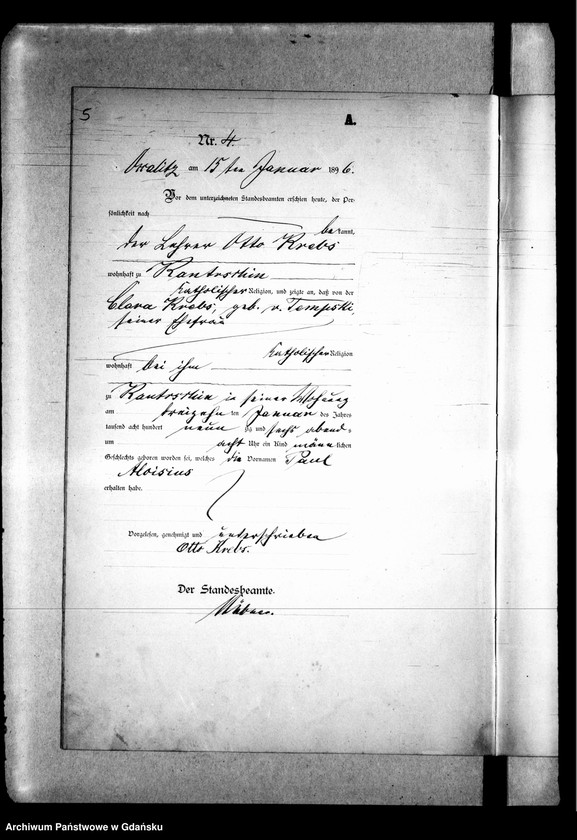 5
A.
Nr. 4.
Occalitz am 15 ten Januar 1896.
Vor dem unterzeichneten Standesbeamten erschien heute, der Per-
sönlichkeit nach
be kannt,
der Lehrer Otto Krebs
wohnhaft zu Kantrschin
Katholischer Religion, und zeigte an, daß von der
Clara Krebs, geb. v. Tempski,
seiner Ehefrau
Katholischer Religion
wohnhaft bei ihm
zu Kantrschin in seiner Wohnung
am dreizehn ten Januar des Jahres
tausend acht hundert neun zig und sechs abend s
um acht Uhr ein Kind männ lichen
Geschlechts geboren worden sei, welches die Vornamen Paul
Aloisius
erhalten habe.
Vorgelesen, genehmigt und unterschrieben
Otto Krebs.
Der Standesbeamte.
Archiwum Państwowe w Gdańsku